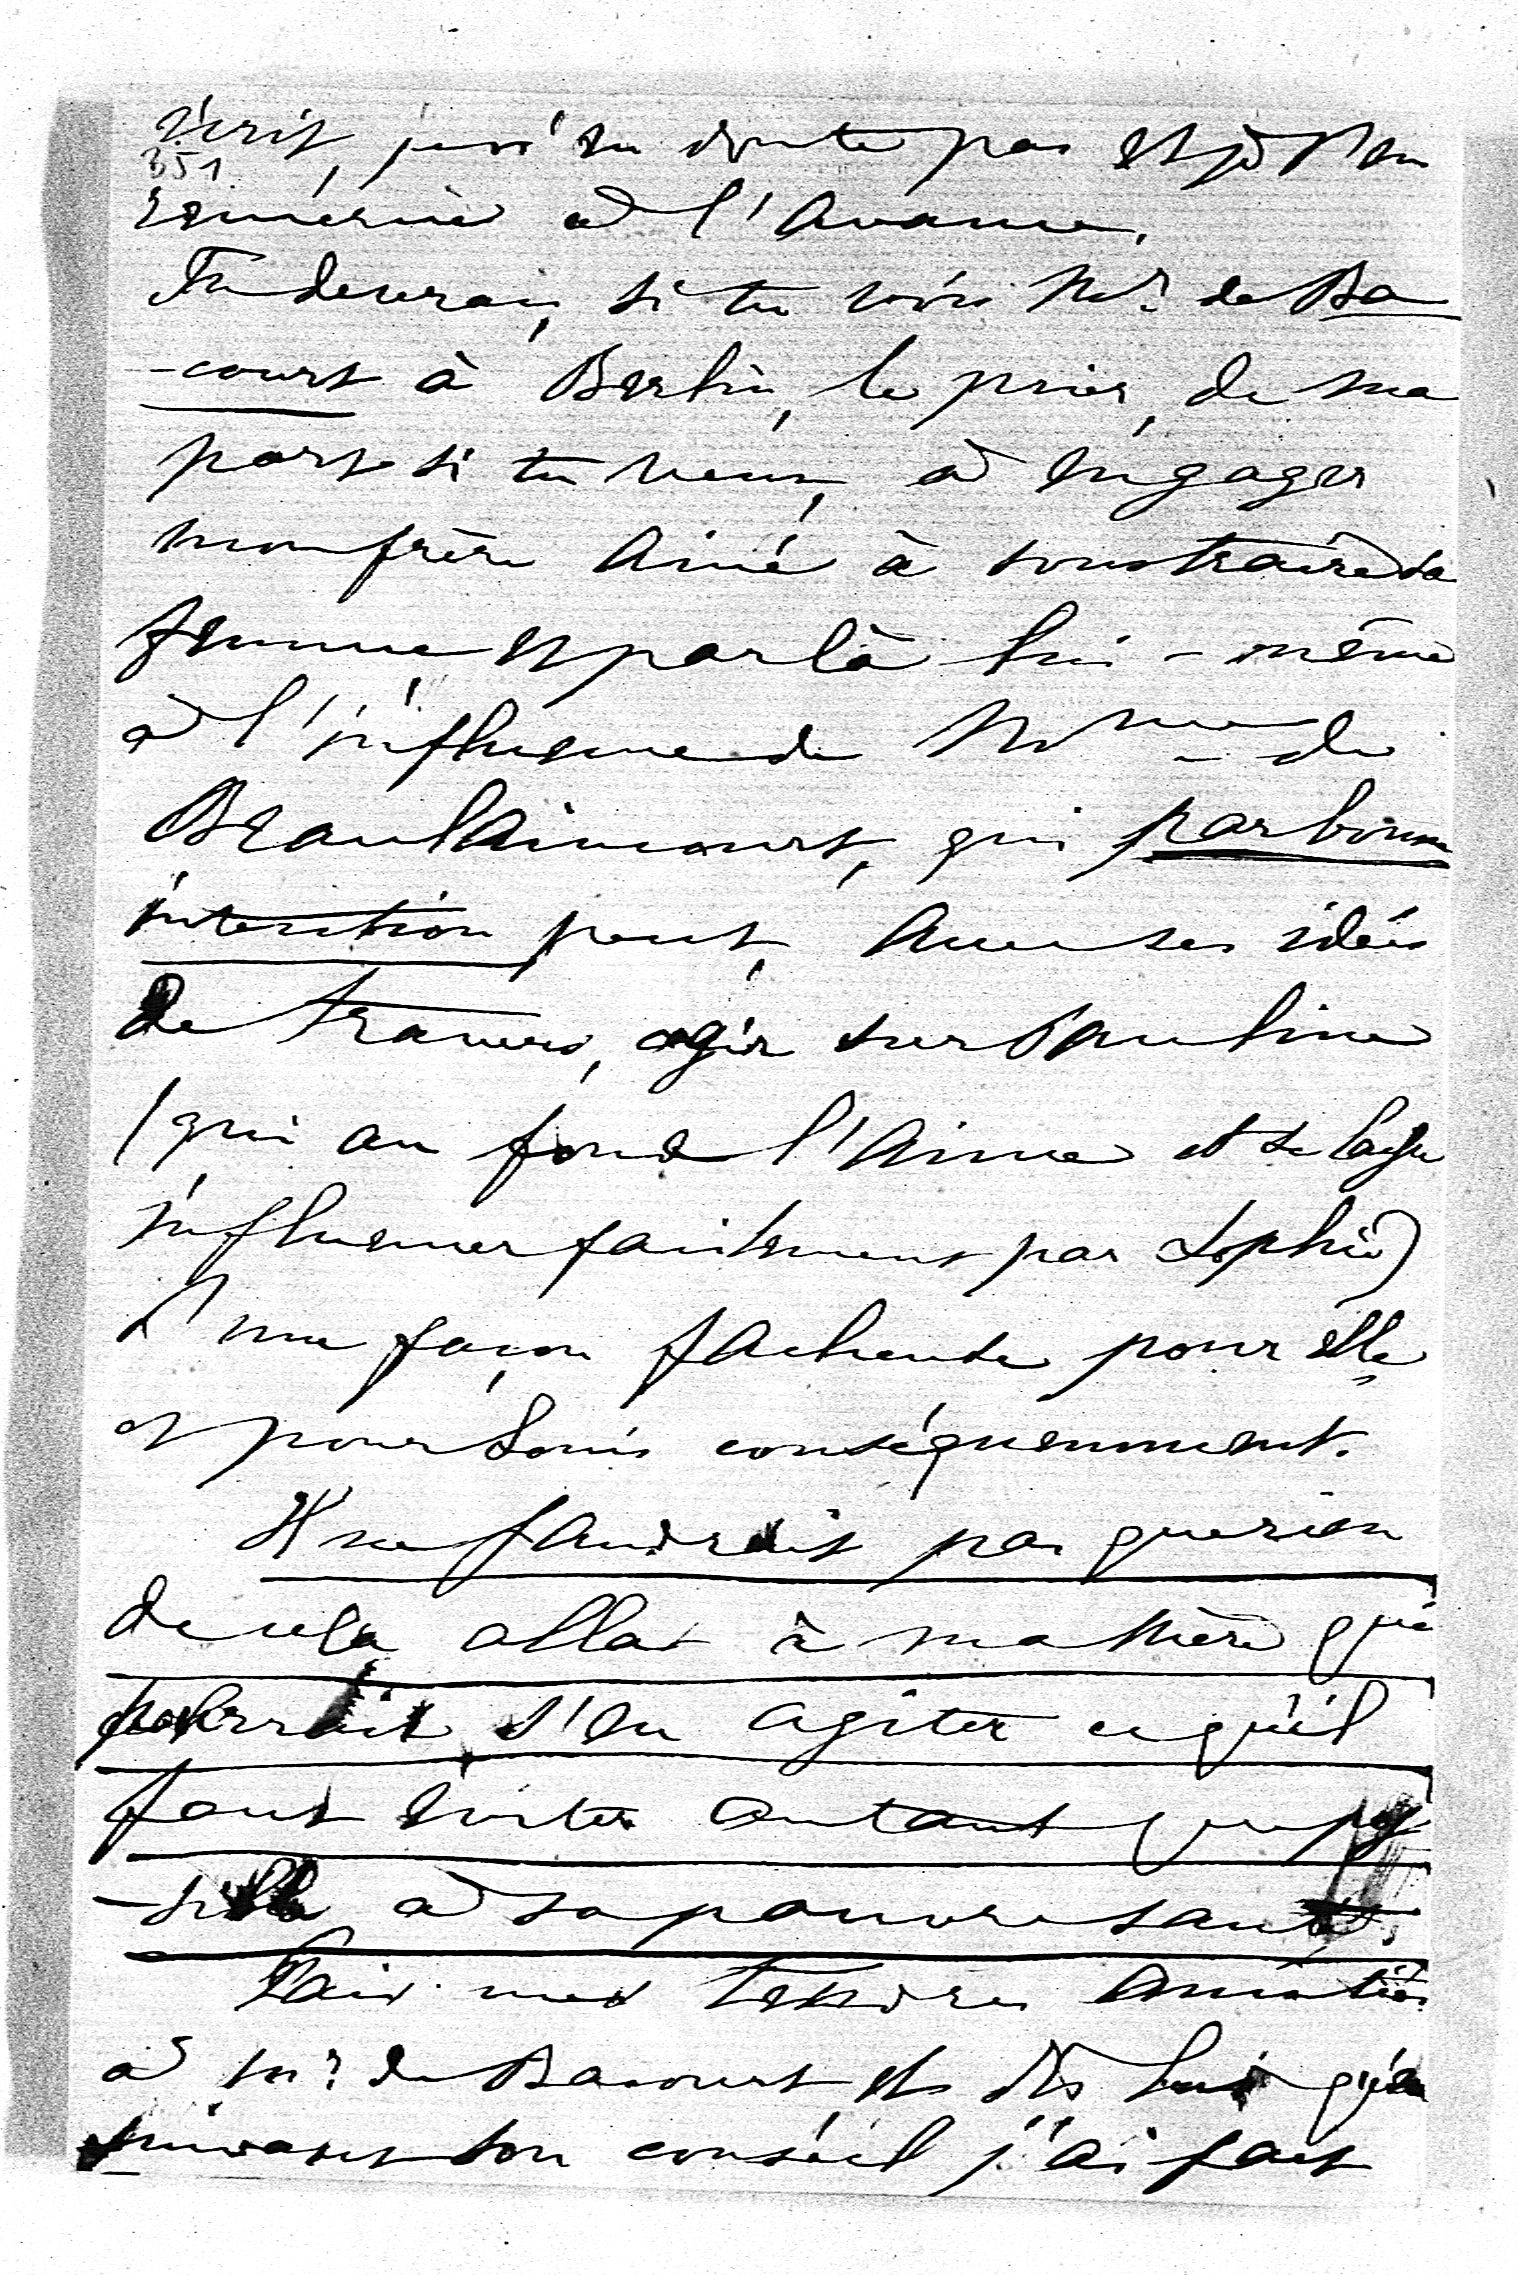 écris, je n'en doute pas et je t'en
351.
remercie à l'avance.
Tu devrais, si tu vois Mr. de Ba
-court à Berlin, le prier, de ma
part si tu veux, à engager
mon frère ainé à soustraire sa
femme et par là lui-même
à l'influence de Mme de
Beaulaincourt, qui par bonne
intention peut, avec ses idées
de travers, agir sur Pauline
(qui au fond l'aime et se laisse
influencer facilement par Sophie)
d'une façon facheuse pour elle
et pour Louis conséquemment.
Il ne faudrait pas que rien
de cela allat à ma mère qui
pourrait s'en agiter ce qu'il
faut éviter autant que pos
-sible à sa pauvre santé.
Fais mes tendres amitiés
à Mr. de Bacourt et dis lui qu'en
suivant son conseil j'ai fait